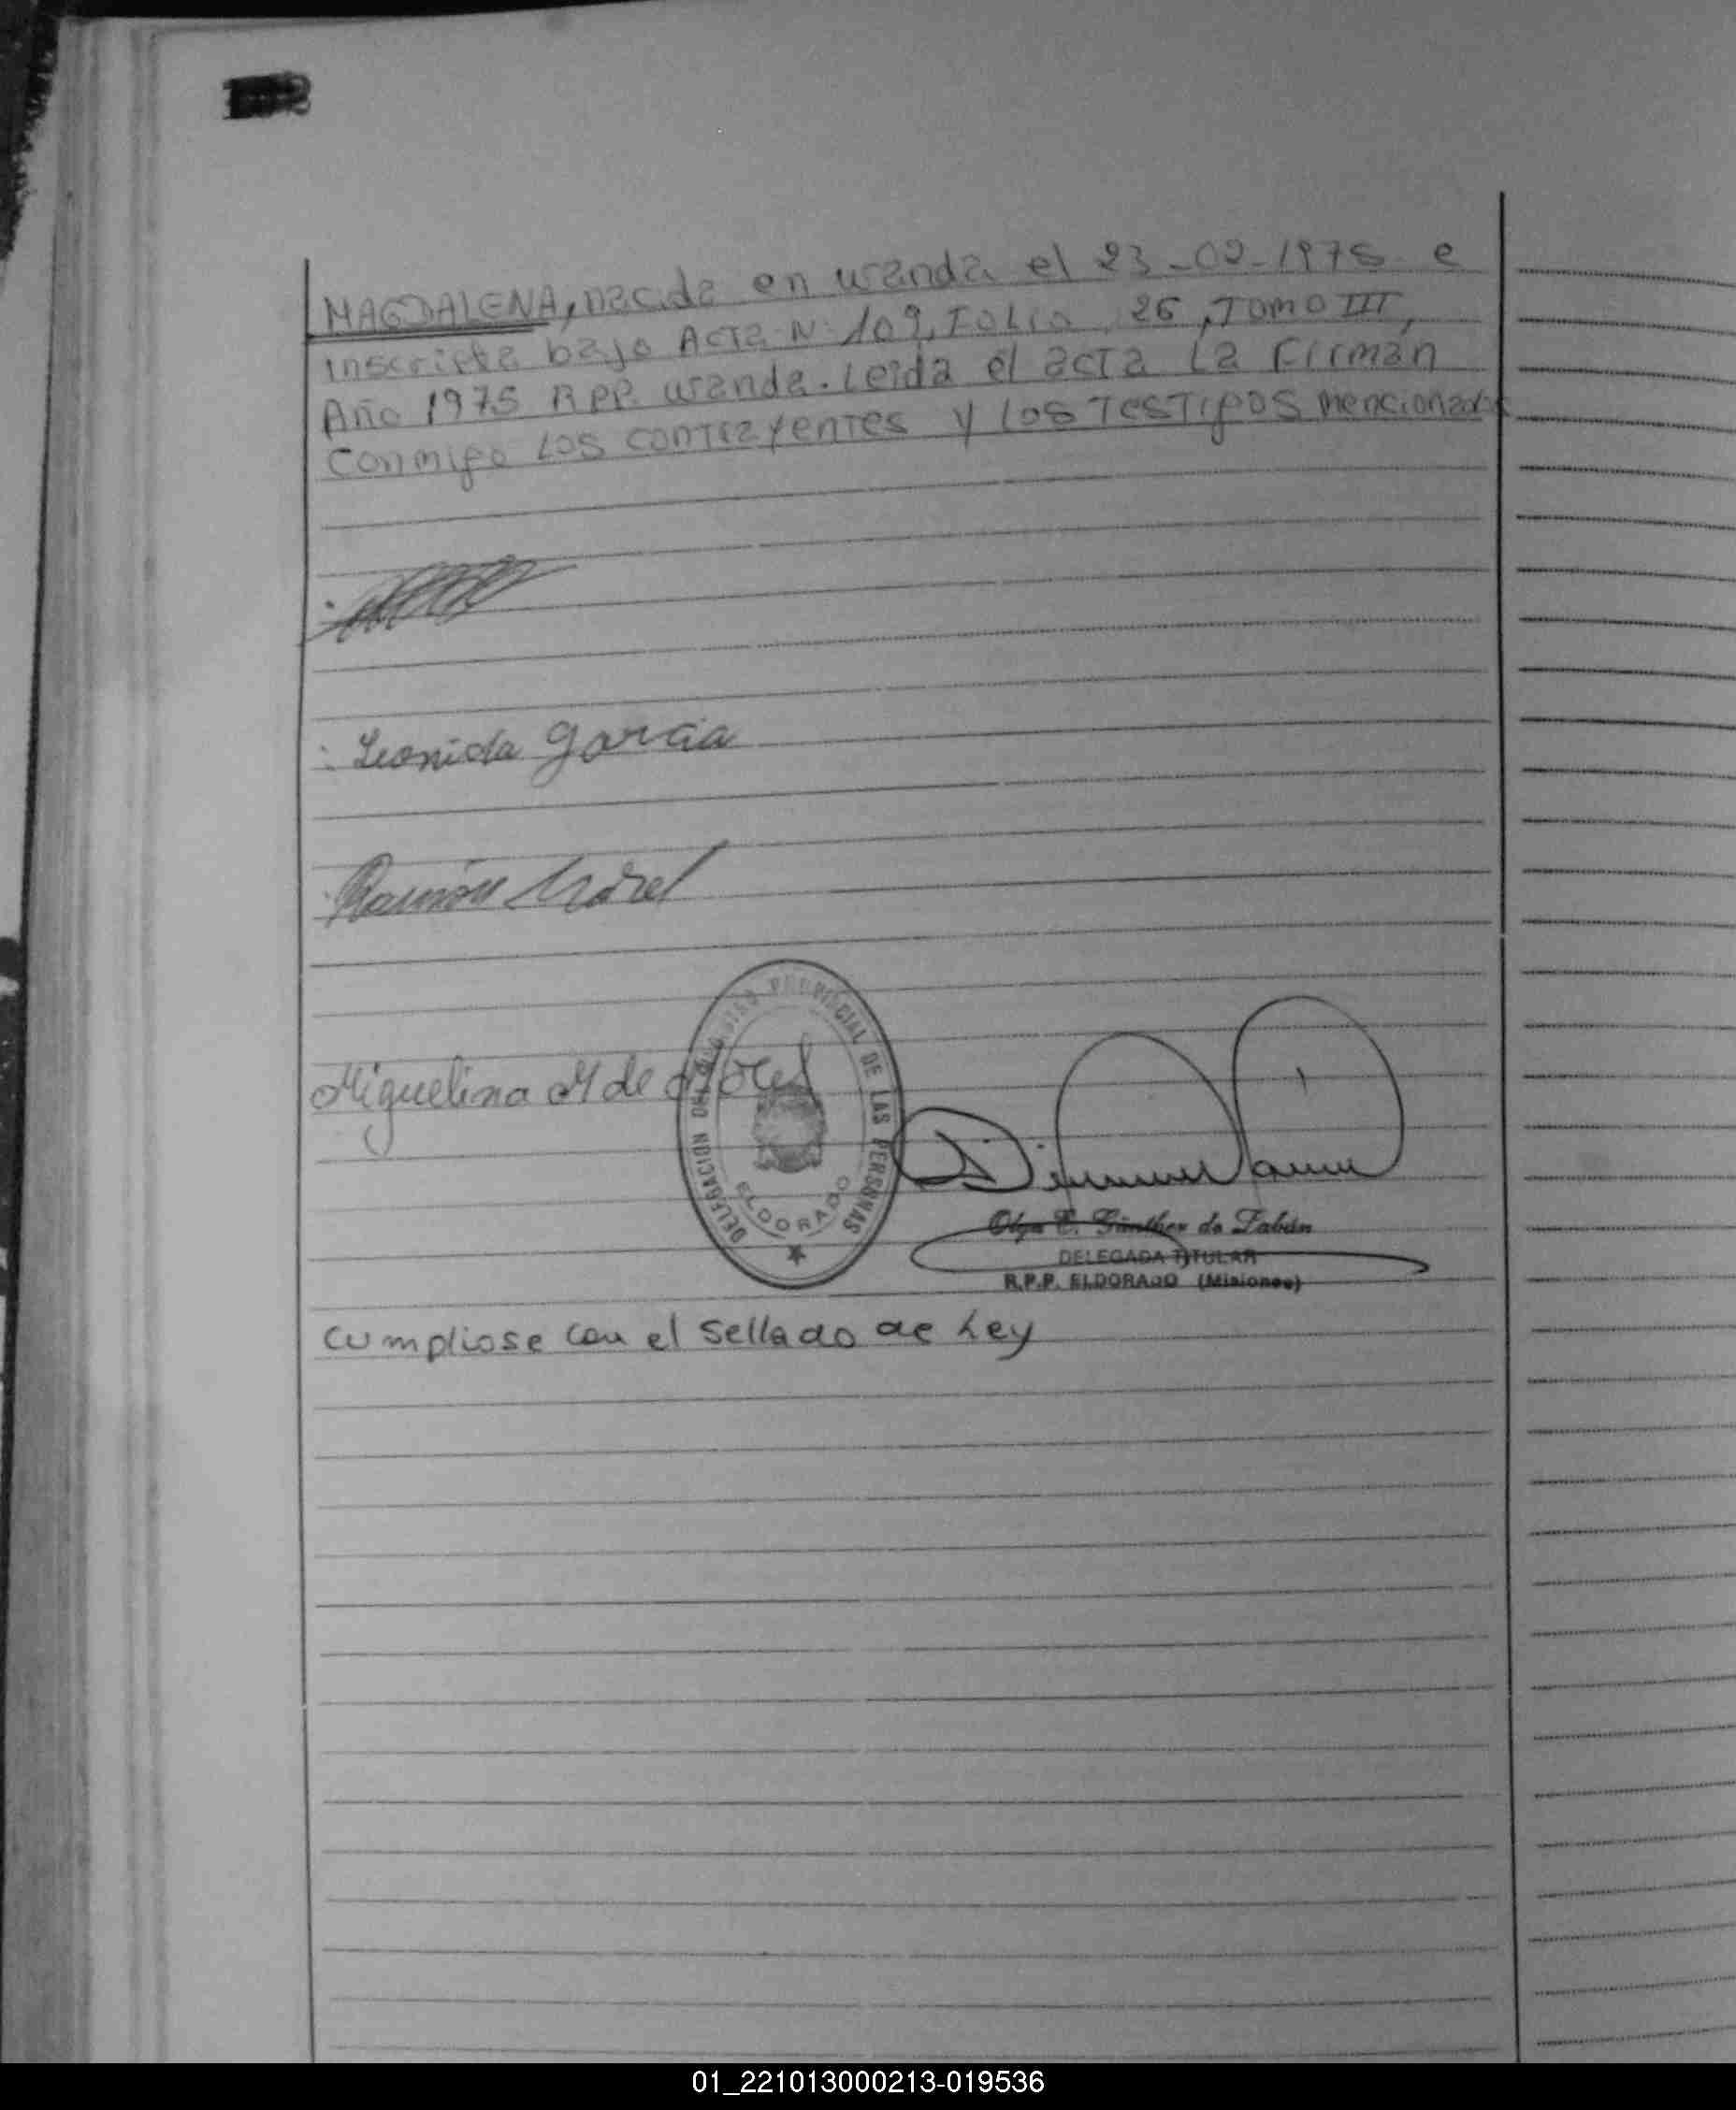 MAGDALENA, nacida en wanda el 23-02-1975 e
inscripta bajo Acta Nº 109, Folio 26, Tomo III,
Año 1975 RPP. wanda. Leida el acta La Firman
Conmigo Los contrayentes y Los Testigos mencionados
Leonida Garcia
Ramón Morel
Miguelina M de Morel
DELEGACION DEL REGISTRO PROVINCIAL DE LAS PERSONAS
ELDORADO
Olga E. Günther de Fabián
DELEGADA TITULAR
R.P.P. ELDORADO (Misiones)
Cumpliose con el sellado de Ley
01_221013000213-019536